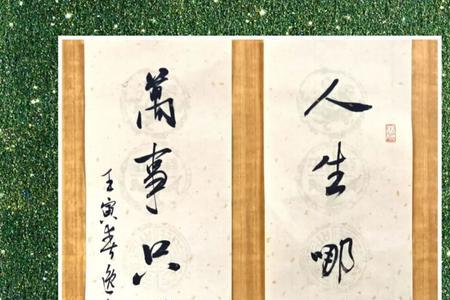 人生哪
萬事只
壬寅春逸